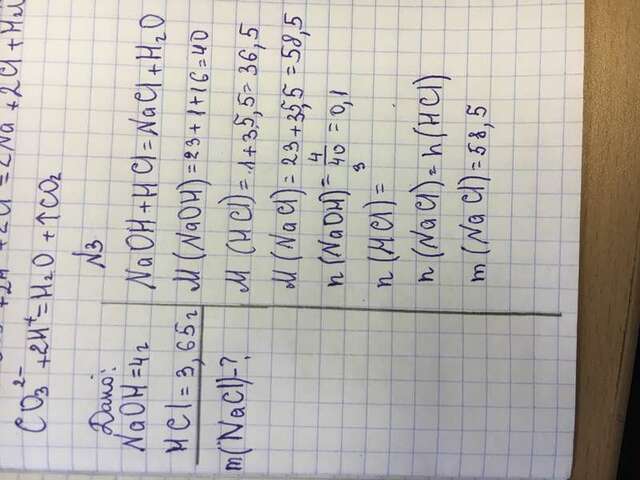 CO₃²⁻ + 2H⁺ = H₂O + ↑CO₂
N3
Дано:
NaOH = 4г
HCl = 3,65г
m(NaCl)-?
NaOH + HCl = NaCl + H₂O
M(NaOH) = 23+1+16 = 40
M(HCl) = 1+35,5 = 36,5
M(NaCl) = 23+35,5 = 58,5
n(NaOH) = 4/40 = 0,1
n(HCl) = 3
n(NaCl) = n(HCl)
m(NaCl) = 58,5